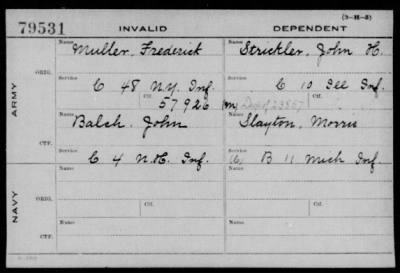 (3-H-3)
79531 INVALID DEPENDENT
Name Name
Muller, Frederick Strickler, John H.
ORIG.
Service Service
C 48 N.Y. Inf. C 10 Ill Inf.
Ctf. Ctf.
57926
ARMY
Name Name
Balch, John Slayton, Morris
Service Service
CTF.
C 4 N.H. Inf. B 11 Mich Inf.
Name Name
ORIG.
Service Service
Ctf. Ctf.
NAVY
Name Name
CTF.
Service Service